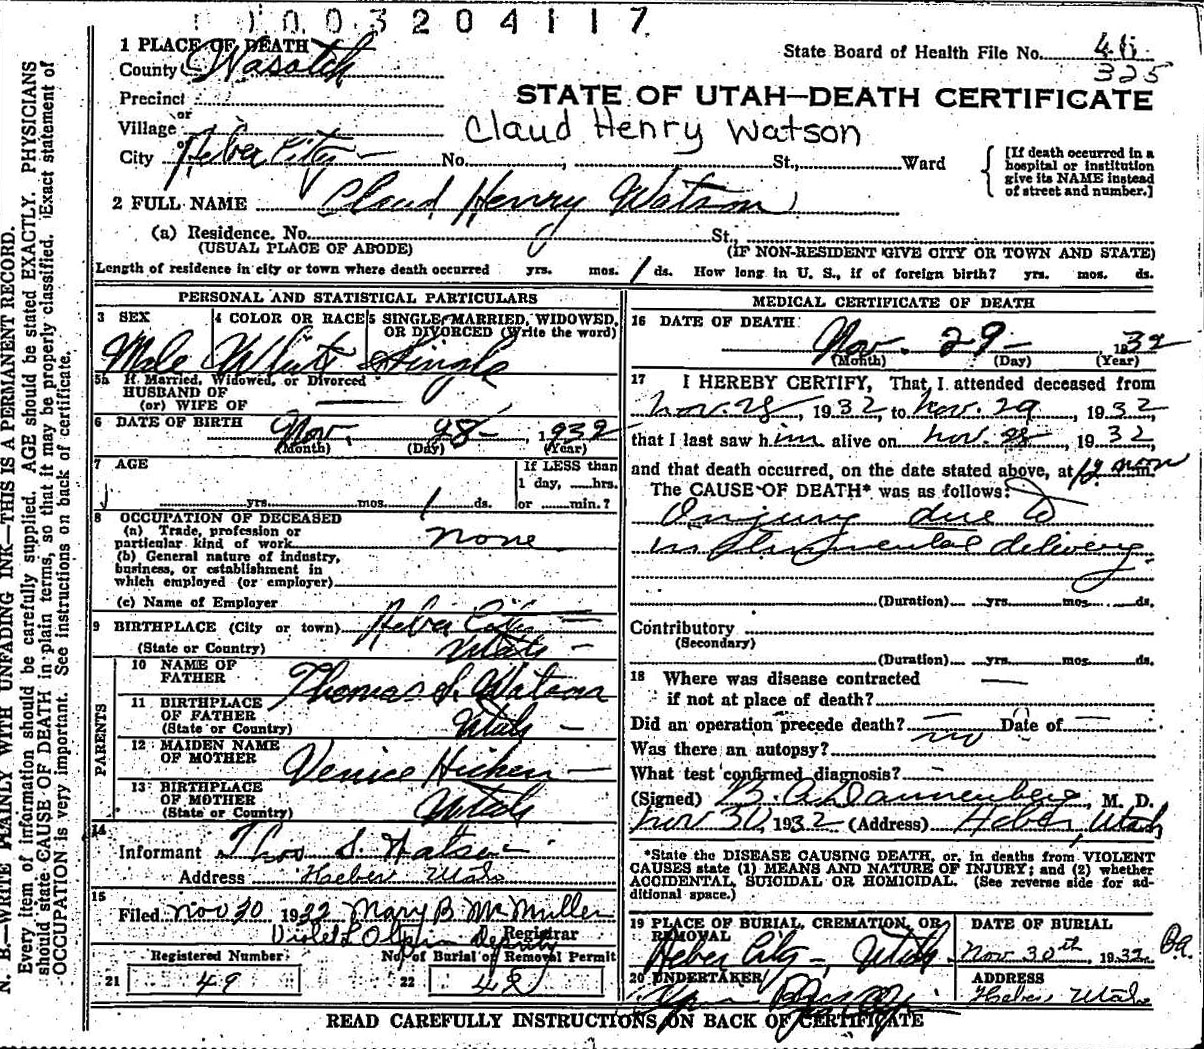 0003204117
1 PLACE OF DEATH
State Board of Health File No.
325
County Wasatch
STATE OF UTAH—DEATH CERTIFICATE
Precinct
or
Village
Claud Henry Watson
or
City Heber City — No. ; St., Ward
[If death occurred in a
hospital or institution
give its NAME instead
of street and number.]
2 FULL NAME Claud Henry Watson
(a) Residence. No. St.,
(USUAL PLACE OF ABODE) (IF NON-RESIDENT GIVE CITY OR TOWN AND STATE)
Length of residence in city or town where death occurred yrs. mos. 1 ds. How long in U. S., if of foreign birth? yrs. mos. ds.
PERSONAL AND STATISTICAL PARTICULARS
3 SEX
Male
4 COLOR OR RACE
White
5 SINGLE, MARRIED, WIDOWED,
OR DIVORCED (Write the word)
Single
5a If Married, Widowed, or Divorced
HUSBAND OF
(or) WIFE OF —
6 DATE OF BIRTH Nov. 28 — , 1932
(Month) (Day) (Year)
7 AGE
yrs. mos. 1 ds.
If LESS than
1 day, ......hrs.
or ......min.?
8 OCCUPATION OF DECEASED
(a) Trade, profession or
particular kind of work none
(b) General nature of industry,
business, or establishment in
which employed (or employer)
(c) Name of Employer
9 BIRTHPLACE (City or town) Heber City —
(State or Country) Utah —
PARENTS
10 NAME OF
FATHER Thomas S. Watson
11 BIRTHPLACE
OF FATHER
(State or Country) Utah —
12 MAIDEN NAME
OF MOTHER Venice Hicken —
13 BIRTHPLACE
OF MOTHER
(State or Country) Utah
14
Informant Thos S. Watson
Address Heber Utah
15
Filed Nov 30 1932 Mary B McMuller
Violet L Olpin Deputy Registrar
Registered Number No. of Burial or Removal Permit
21 49 22 42
MEDICAL CERTIFICATE OF DEATH
16 DATE OF DEATH
Nov. 29 — 1932
(Month) (Day) (Year)
17 I HEREBY CERTIFY, That I attended deceased from
Nov. 28, 1932 to Nov. 29, 1932,
that I last saw him alive on Nov. 28, 1932
and that death occurred, on the date stated above, at 12 noon
The CAUSE OF DEATH* was as follows:
Injury due to
instrumental delivery.
(Duration) yrs. mos. ds.
Contributory
(Secondary)
(Duration) yrs. mos. ds.
18 Where was disease contracted
if not at place of death? —
Did an operation precede death? — Date of —
Was there an autopsy? no
What test confirmed diagnosis? —
(Signed) B. A. Dannenberg, M. D.
Nov 30, 1932 (Address) Heber, Utah
*State the DISEASE CAUSING DEATH, or, in deaths from VIOLENT
CAUSES state (1) MEANS AND NATURE OF INJURY; and (2) whether
ACCIDENTAL, SUICIDAL OR HOMICIDAL. (See reverse side for ad-
ditional space.)
19 PLACE OF BURIAL, CREMATION, OR
REMOVAL
Heber City —, Utah
DATE OF BURIAL
Nov 30th, 1932
20 UNDERTAKER
ADDRESS
Heber Utah
READ CAREFULLY INSTRUCTIONS ON BACK OF CERTIFICATE
N. B.—WRITE PLAINLY WITH UNFADING INK—THIS IS A PERMANENT RECORD.
Every item of information should be carefully supplied. AGE should be stated EXACTLY. PHYSICIANS
should state CAUSE OF DEATH in plain terms, so that it may be properly classified. Exact statement of
OCCUPATION is very important. See instructions on back of certificate.